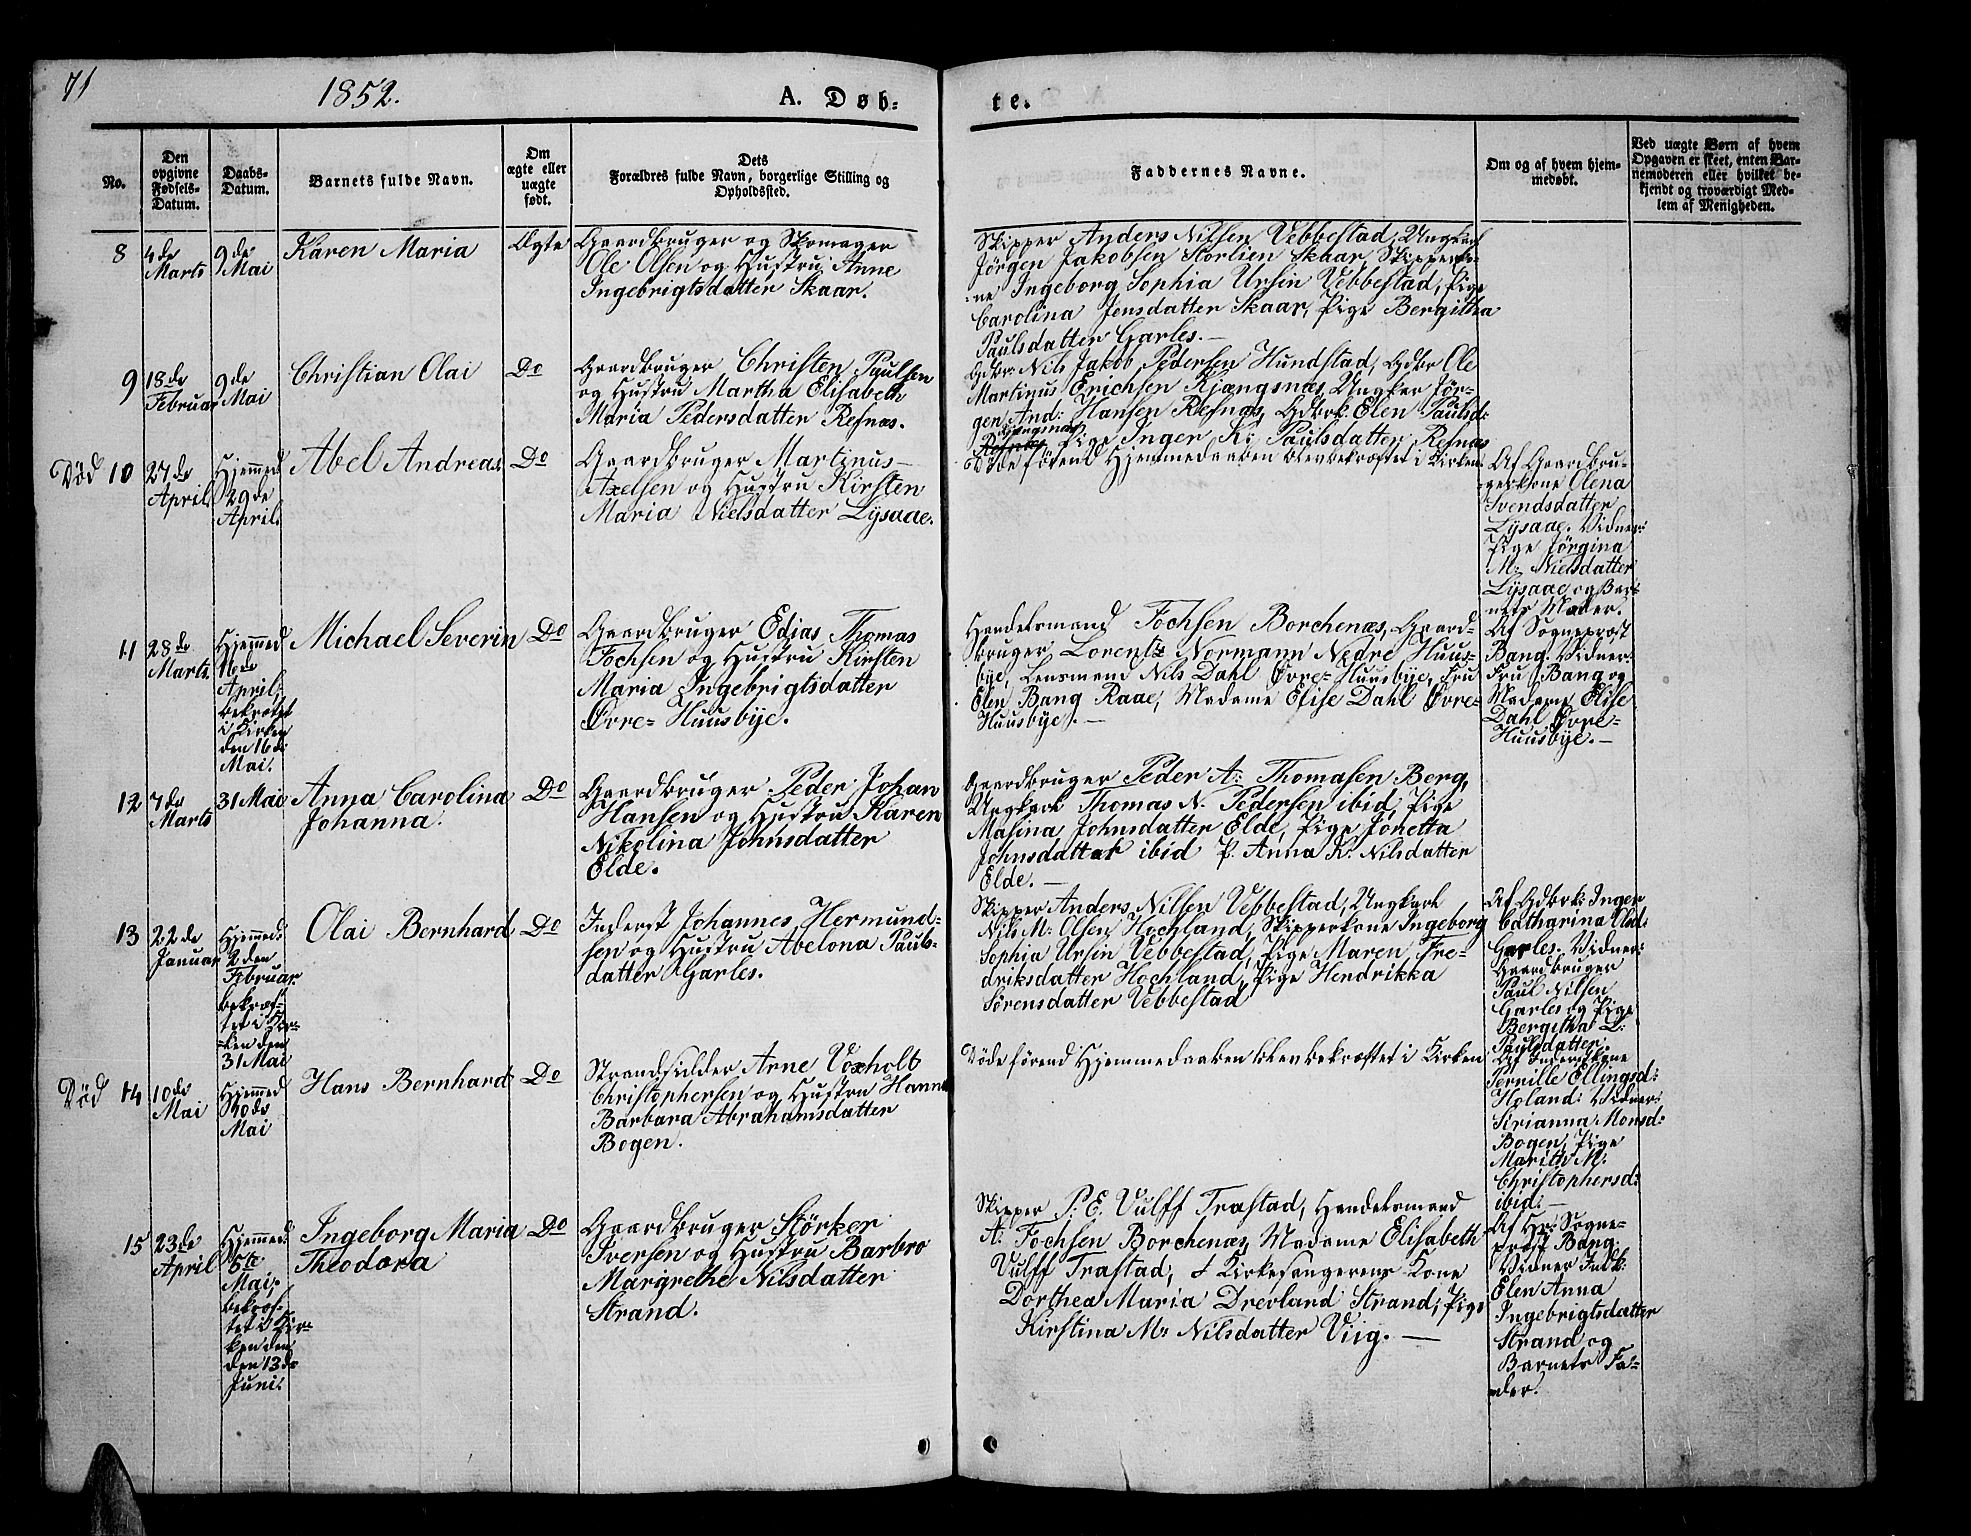 71
1852.
A. Døb-
te.
No.
Den
opgivne
Fødsels-
Datum.
Daabs-
Datum.
Barnets fulde Navn.
Om
ægte eller
uægte
født.
Dets
Forældres fulde Navn, borgerlige Stilling og
Opholdssted.
Faddernes Navne.
Om og af hvem hjem-
medøbt.
Ved uægte Børn af hvem
Opgaven er skeet, enten Bar-
nemoderen eller hvilket be-
kjendt og troværdigt Med-
lem af Menigheden.
8
4de
Marts
9de
Mai
Karen Maria
Ægte
Gaardbruger og Skomager
Ole Olsen og Hustru Anne
Ingebrigtsdatter Skaar.
Skipper Anders Nilsen Vebbestad, Ungkarl
Jörgen Jakobsen Storlien Skaar, Skipperko-
ne Ingeborg Sophia Ursin Vebbestad, Pige
Carolina Jensdatter Skaar, Pige Bergitha
Paulsdatter Garles.—
9
18de
Februar
9de
Mai
Christian Olai
Do
Gaardbruger Christen Paulsen
og Hustru Martha Elisabeth
Maria Pedersdatter Refnæs.
Gdbr: Nils Jakob Pedersen Hundstad, Gdbr Ole
Martinus Erichsen Kjængsnæs, Ungker Jör-
gen And: Hansen Refnæs, Gdbrk. Elen Paulsd:
Kjængsnæs
Refnæs, Pige Inger K: Paulsdatter Refnæs
Död 10
27de
April
Hjemmed
29de
April.
Abel Andreas
Do
Gaardbruger Martinus
Axelsen og Hustru Kirsten
Maria Nielsdatter Lysaae.
Döde förend Hjemmedaaben blev bekræftet i Kirken
Af Gaardbru-
gerkone Olena
Svendsdatter
Lysaae. Vidner:
Pige Jörgina
M: Nielsdatter
Lysaae og Bar-
nets Moder.
11
28de
Marts.
Hjemmed
16de
April,
bekræftet
i Kirken
den 16de
Mai.
Michael Severin
Do
Gaardbruger Edias Thomas
Fochsen og Hustru Kirsten
Maria Ingebrigtsdatter
Övre-Huusbye.
Handelsmand Fochsen Borchenæs, Gaard-
bruger Lorents Normann Nedre Huus-
bye, Lensmand Nils Dahl Övre-Huusbye, Fru
Elen Bang Raae, Madame Elise Dahl Övre-
Huusbye.—
Af Sogneprost
Bang. Vidner:
Fru Bang og
Madame Elise
Dahl Övre-
Huusbye.—
12
7de
Marts
31 Mai
Anna Carolina
Johanna.
Do
Gaardbruger Peder Johan
Hansen og Hustru Karen
Nikolina Johnsdatter
Elde.
Gaardbruger Peder A: Thomasen Berg,
Ungkarl Thomas N. Pedersen ibid, Pige
Masina Johnsdatter Elde, Pige Jonetta
Johnsdatter ibid P. Anna K. Nilsdatter
Elde.—
13
22de
Januar
Hjemmed:
2den
Februar
bekræf-
tet i Kir-
ken den
31 Mai
Olai Bernhard
Do
Inderst Johannes Hermund-
sen og Hustru Abelona Pauls-
datter Garles.
Skipper Anders Nilsen Vebbestad, Ungkarl
Nils M: Olsen Hochland, Skipperkone Ingeborg
Sophia Ursin Vebbestad, Pige Maren Fre-
driksdatter Hochland, Pige Hendrikka
Sörensdatter Vebbestad
Af Gdbrk: Inger
Catharina Olsd:
Garles. Vidner:
Gaardbruger
Paul Nilsen
Garles og Pige
Bergitha L:
Paulsdatter.
Död 14
10de
Mai
Hjemmed
30de
Mai
Hans Bernhard
Do
Strandsidder Arne Voxholt
Christophersen og Hustru Hanna
Barbara Abrahamsdatter
Bogen.
Döde förend Hjemmedaaben blev bekræftet i Kirken
Af Inderstkone
Pernille Ellingsd:
Holand: Vidner:
Sirianna Monsd:
Bogen, Pige
Marith M:
Christophersd:
ibid.—
15
23de
April
Hjemmed:
5te
Mai,
bekræf-
tet i Kir-
ken den
den 13de
Juni.
Ingeborg Maria
Theodora
Do
Gaardbruger Störker
Iversen og Hustru Barbro
Margrethe Nilsdatter
Strand.
Skipper P. E. Vulff Træstad, Handelsmand
A: Fochsen Borchenæs, Madame Elisabeth
Vulff Træstad, Kirkesangerens Kone
Dorthea Maria Drevland Strand, Pige
Kirstina M: Nilsdatter Viig.—
Af Hr: Sogne-
prost Bang.
Vidner Indk:
Elen Anna
Ingebrigtsdatter
Strand og
Barnets Fa-
der.